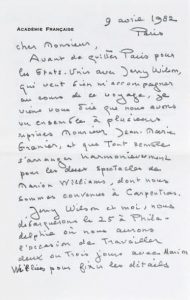 ACADÉMIE FRANÇAISE
9 avril 1982
Paris
cher Monsieur,
Avant de quitter Paris pour
les Etats-Unis avec Jerry Wilson,
qui veut bien m'accompagner
au cours de ce voyage, je
viens vous dire que nous avons
vu ensemble à plusieurs
reprises Monsieur Jean-Marie
Granier, et que tout semble
s'arranger harmonieusement
pour les deux spectacles de
Marion Williams, dont nous
sommes convenus à Carpentras.
Jerry Wilson et moi, nous
débarquons le 25 à Phila-
delphia où nous aurons
l'occasion de travailler
deux ou trois jours avec Marion
Williams pour fixer les détails